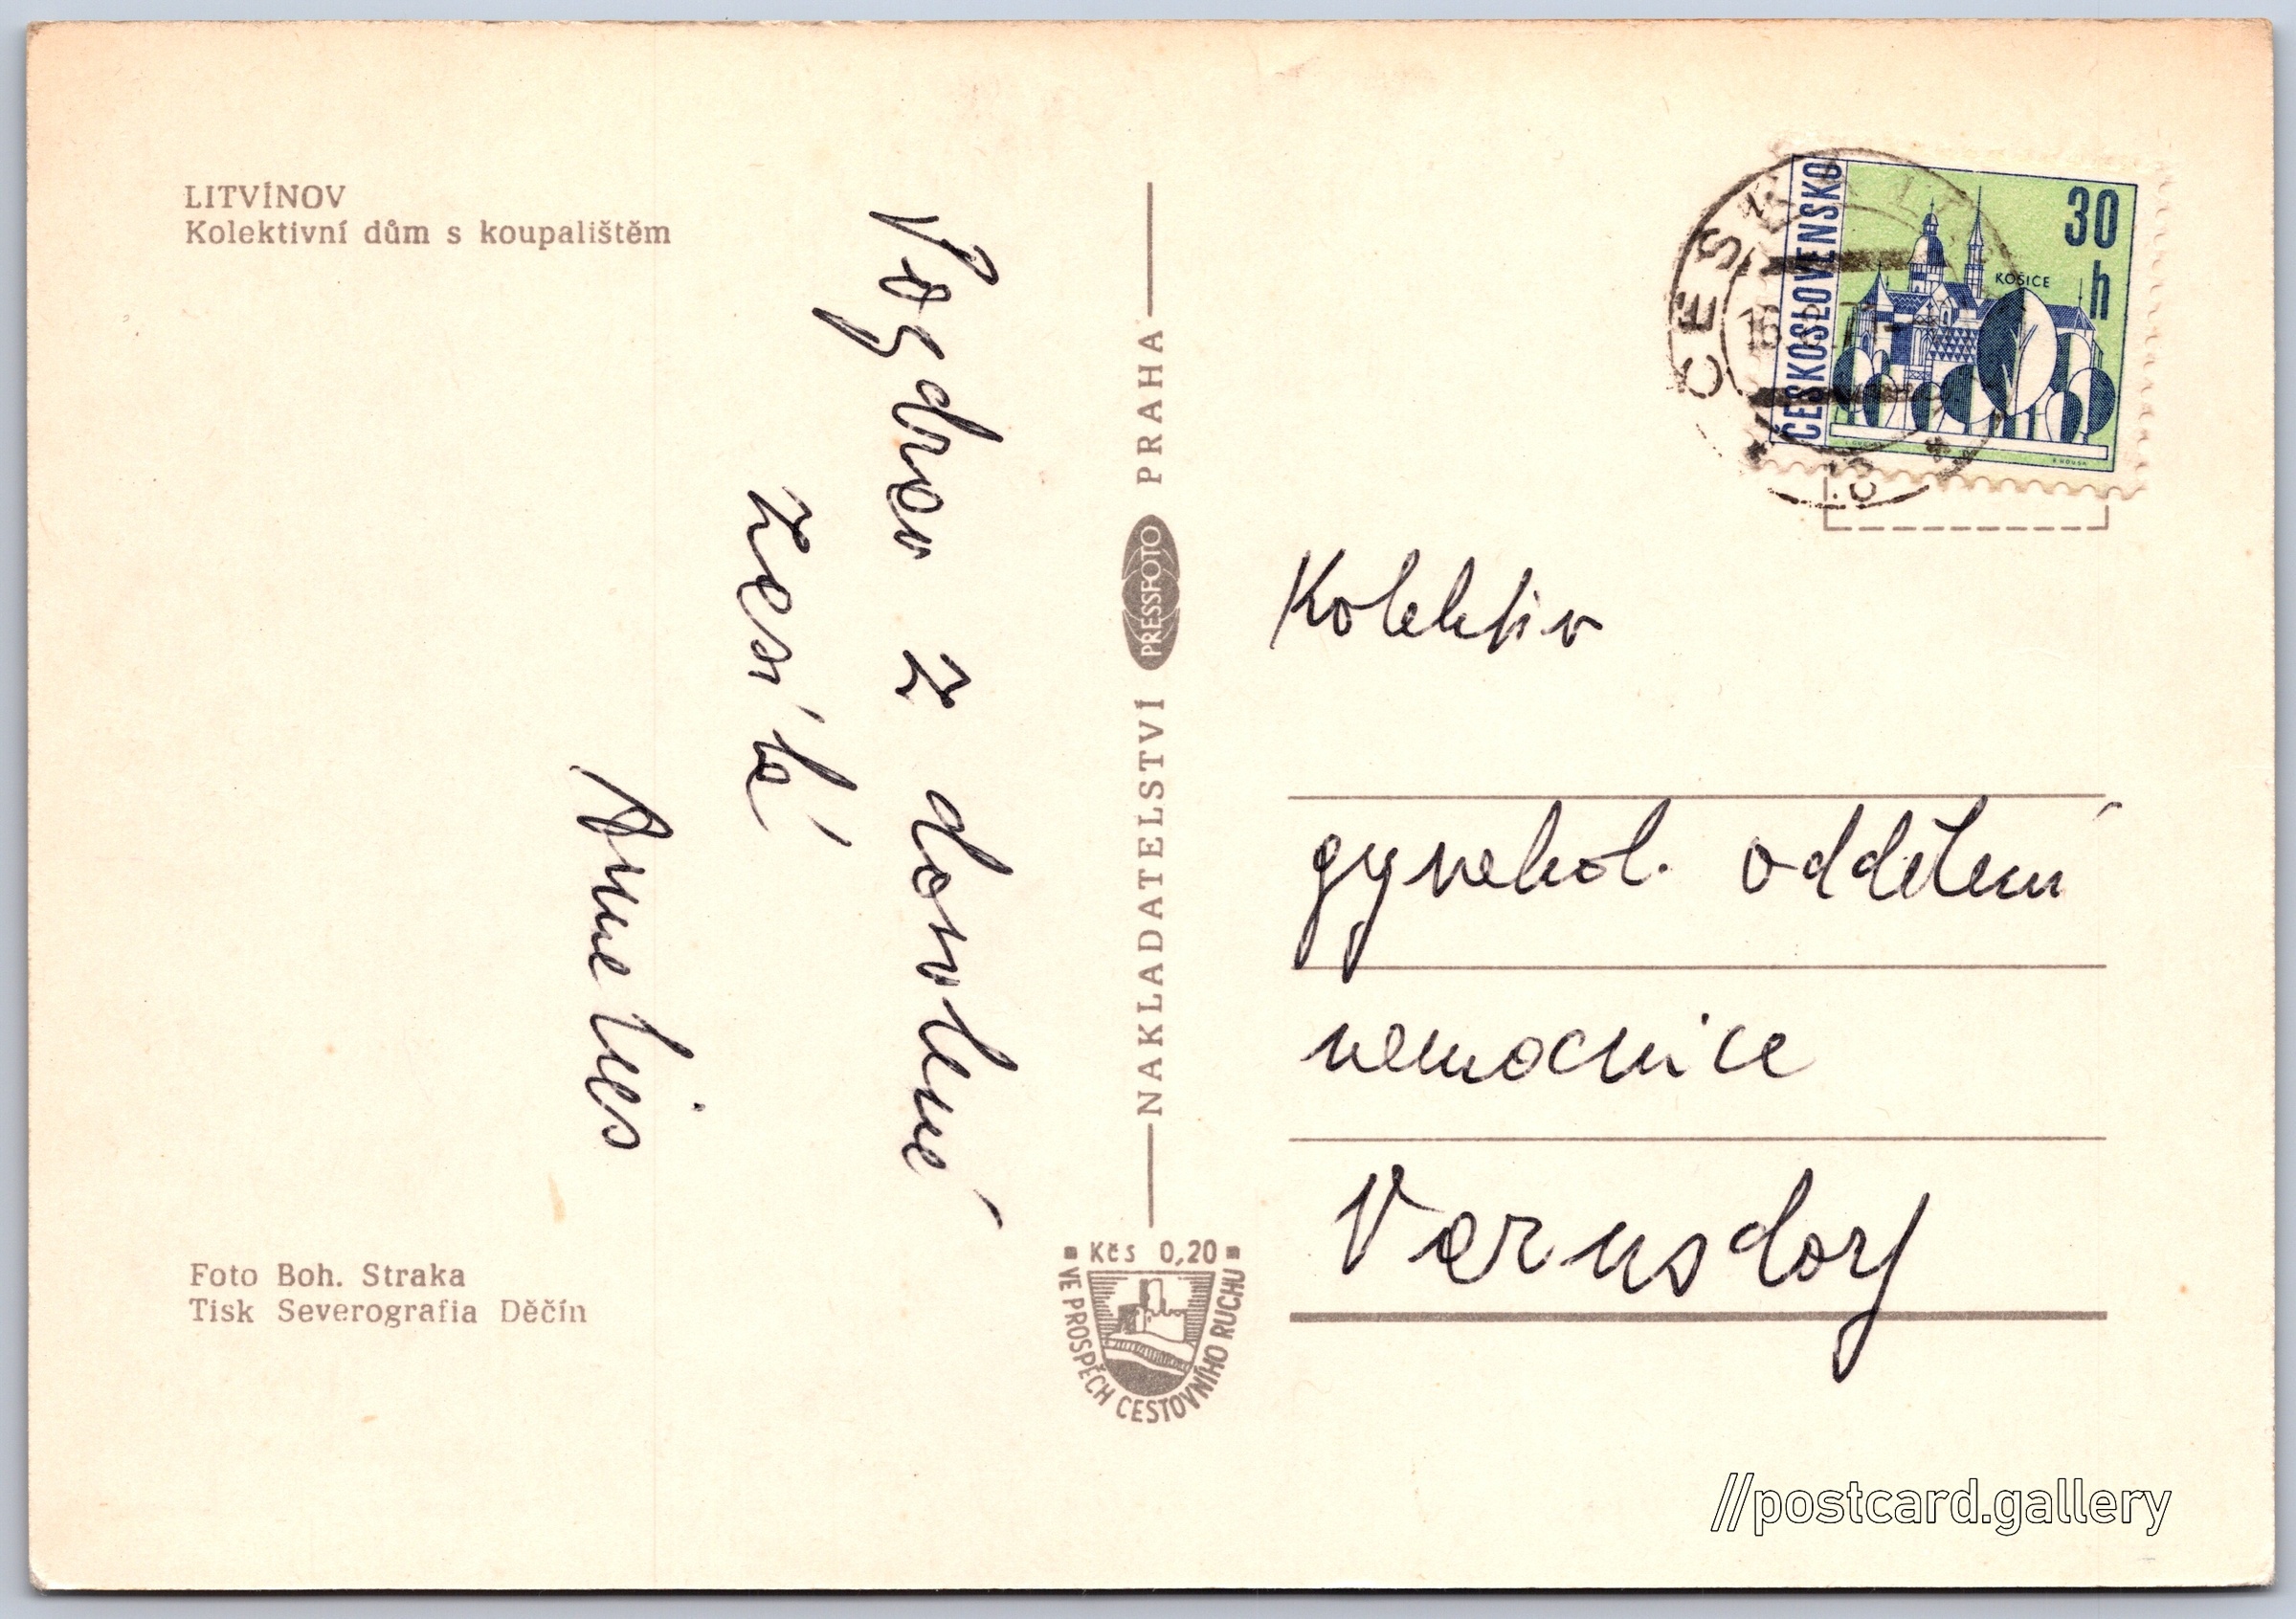 LITVÍNOV
Kolektivní dům s koupalištěm
Pozdrav z dovolené
zasílá
Annelies
Foto Boh. Straka
Tisk Severografia Děčín
NAKLADATELSTVÍ PRESSFOTO PRAHA
Kčs 0,20
VE PROSPĚCH CESTOVNÍHO RUCHU
ČESKOSLOVENSKO
30
h
KOŠICE
Kolektiv
gynekol. oddělení
nemocnice
Varnsdorf
//postcard.gallery